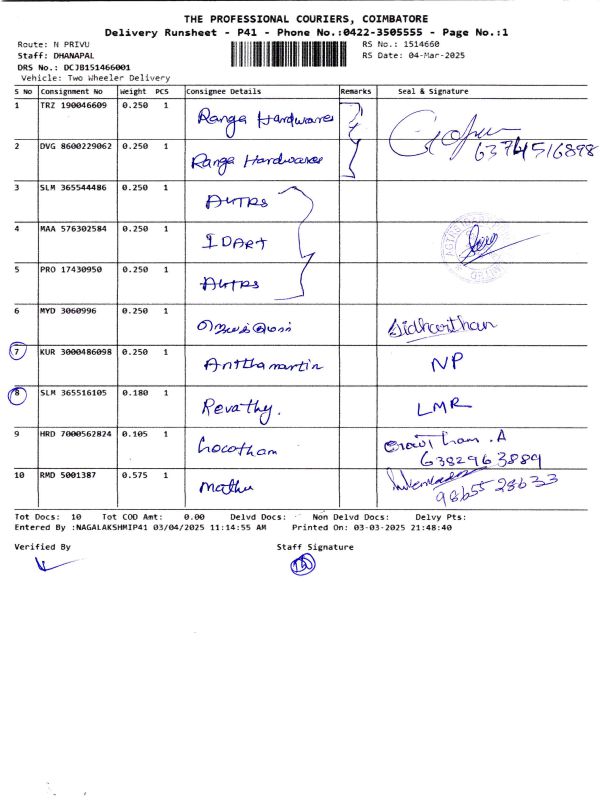 THE PROFESSIONAL COURIERS, COIMBATORE
Delivery Runsheet - P41 - Phone No.:0422-3505555 - Page No.:1
Route: N PRIVU
RS No.: 1514660
Staff: DHANAPAL
RS Date: 04-Mar-2025
DRS No.: DCJB151466001
Vehicle: Two Wheeler Delivery
S No Consignment No Weight PCS Consignee Details Remarks Seal & Signature
1 TRZ 190046609 0.250 1 Ranga Hardwares
6374516898
2 DVG 8600229062 0.250 1 Ranga Hardwares
3 SLM 365544486 0.250 1
4 MAA 576302584 0.250 1 IDART
5 PRO 17430950 0.250 1
6 MYD 3060996 0.250 1 Sidharthan
7 KUR 3000486098 0.250 1 Anthamartin NP
8 SLM 365516105 0.180 1 Revathy. LMR
9 HRD 7000562824 0.105 1
6382963889
10 RMD 5001387 0.575 1 Mathu
98655 28633
Tot Docs: 10 Tot COD Amt: 0.00 Delvd Docs: Non Delvd Docs: Delvy Pts:
Entered By :NAGALAKSHMIP41 03/04/2025 11:14:55 AM Printed On: 03-03-2025 21:48:40
Verified By Staff Signature